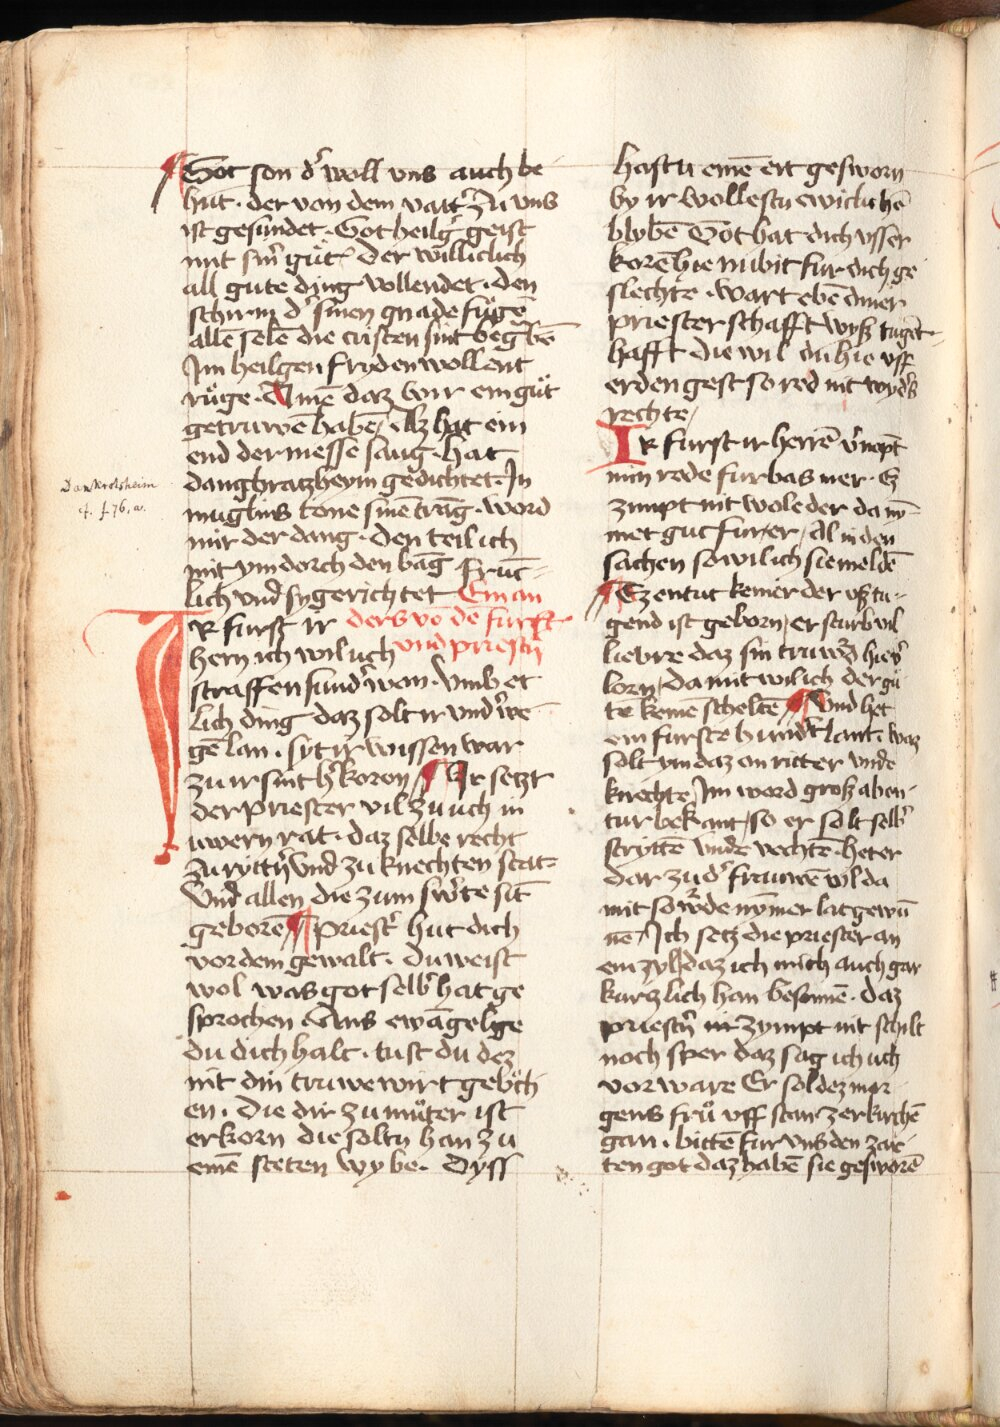 Got son d' woll vns auch be
hut · der von dem vatt' zu vns
ist gesundet · Got heilg' geist
mit sin' gut' der williclich
all gute ding vollendet · den
schirm d' sinen gnade fuge
allē selē die cristen sint
Jm heilgen friden wollent
ruge · Amē daz wir ein gůt
getruwē habē / Az hat ein
end der messe sang · hat
dangbratzheym gedichtet · Jn
muglins tone sinē trag · word
mir der dang · den teil ich
mit ym dorch den bāg
lich vnd sygerichtet Ein an
ders vō dē furst
vnd priest'n
Dankrotsheim
cf. f. 76, a.
IR furst ir
hern ich wil uch
straffen sund' won · vmb et
lich ding daz solt ir vnd' we
gē lan · syt ir wissen war
zu ir sint h' koron / Ir setzt
der priester vil zu uch in
uwern rat · daz selbe recht
zu rytt'n vnd zu knechten stat
Vnd allen die zum sw'te sīt
geborē priest' hut dich
vor dem gewalt · du weist
wol was got selb' hat ge
sprochen · Ans ewāgelge
du dich halt · tust du dez
nit din truwe wirt geboch
en · Die dir zu můter ist
erkorn die soltu han zu
einē steten wybe · Dyss
hastu einē eit gesworn
by ir wollestu ewiclichē
blybē Got hat dich vsser
korē hie nubit fur dich ge
slechte · wart ebē diner
priesterschafft wyß tugēt
hafft die wil du hie vff
erden gest so red nit wyd's
rechte /
IR furst ir herrē v'nept
min rede furbas mer · Ez
zimpt nit wole der da nȳ
met gut fur er / Al in den
sachen so wil ich sie meldē
Ez entut keiner der vß tu
gend ist geborn / er sturb vil
liebre daz sin truw' hie v'
lorn / da mit wil ich der gů
te keinē scheltē Vnd het
ein furste hund't lant · waz
solt ym daz on ritter vnde
knechte / Jm word groß aben
tur bekant / so er solt selb'
strytte vnde vechtē · heter
dar zu d' frauwē vil da
mit so w'de nȳmer lat gewū
nē / Ich setz die priester an
ein zyl / daz ich mich auch gar
kurtzlich han besonnē · daz
priest'n nir zympt nit schilt
noch sper daz sag ich uch
vorware Er sol dez mor
gens frů vff stan zer kirchē
gan · bittē fur vns den zar
ten got daz habē sie gesworē